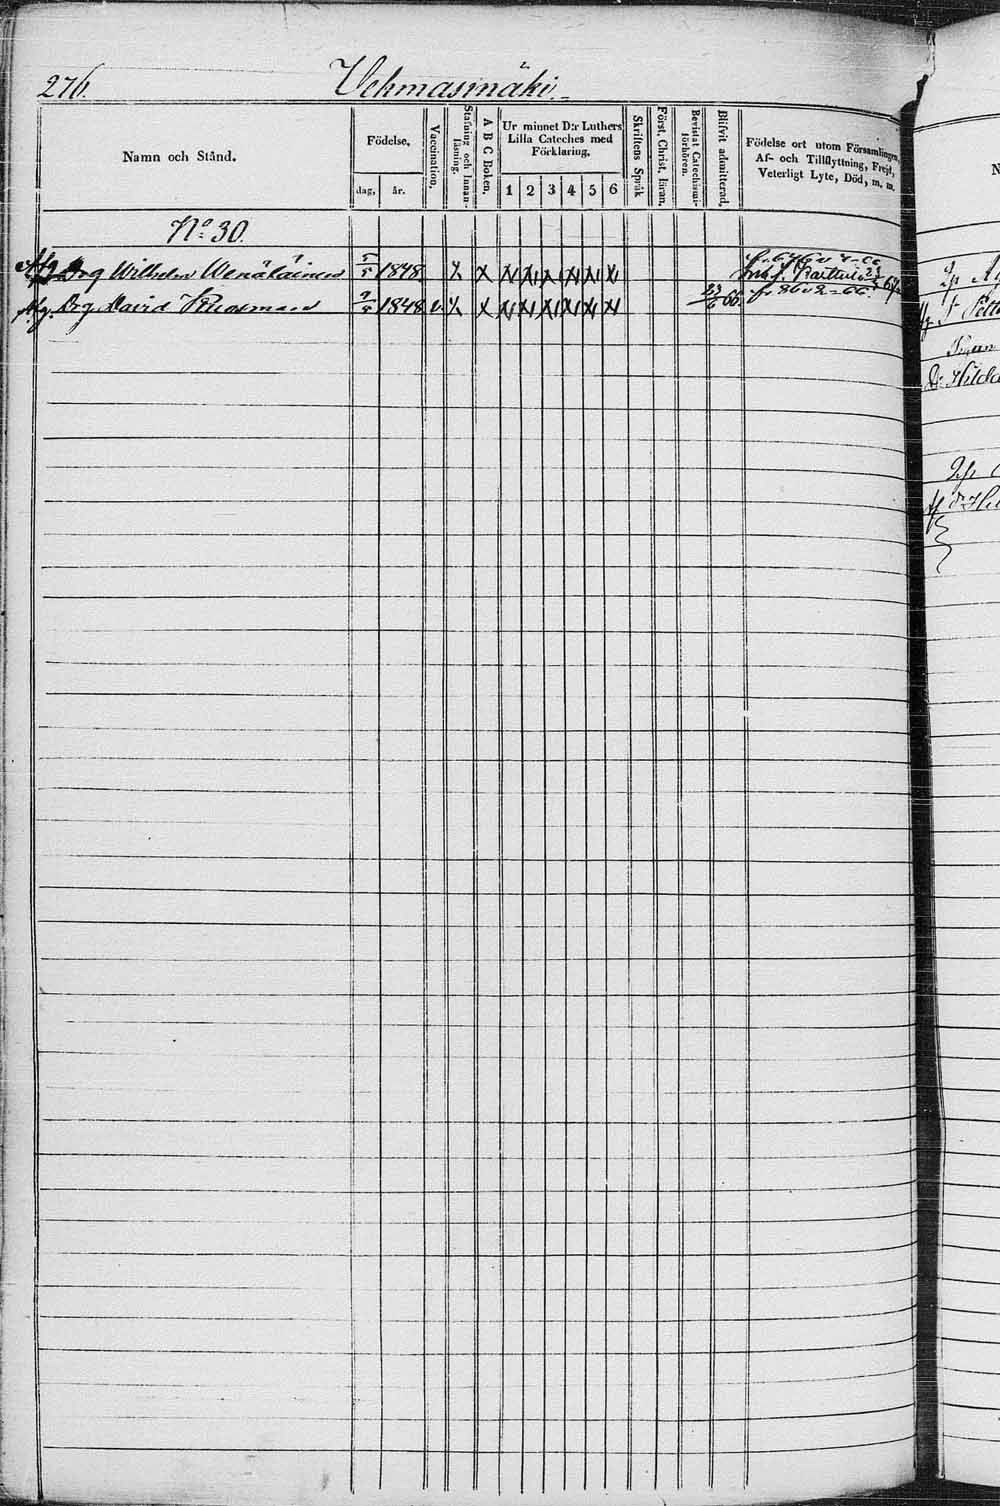 276.
Vehmasmäki.
Namn och Stånd.
Födelse.
dag. år.
Vaccination.
Stafning och Innanläsning.
A B C Boken.
Ur minnet D:r Luthers Lilla Cateches med Förklaring.
1 2 3 4 5 6
Skriftens Språk
Först. Christ. läran.
Bevistat Catechismi-förhören.
Blifvit admitterad.
Födelse ort utom Församlingen, Af- och Tillflyttning, Frejd, Veterligt Lyte, Död, m. m.
No 30.
Drg Wilhelm Wenäläinen 5/5 1848 x x x x x x x x
Drg David 9/5 1848 v. x x x x x x x x 23/6 66. fr. 86 v 2-66.
N
Hilda